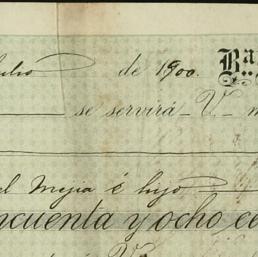 ulio de 1900. Ba
se servirá V. m
el Mejia é hijo
ncuenta y ocho ce